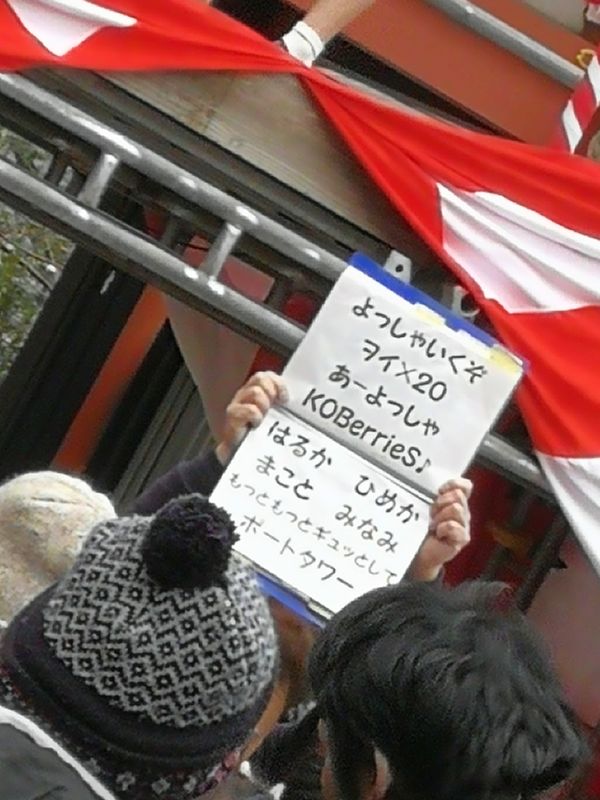 よっしゃいくぞ
ヲイ×20
あーよっしゃ
KOBerrieS♪
はるか ひめか
まこと みなみ
もっともっとギュッとして
ポートタワー